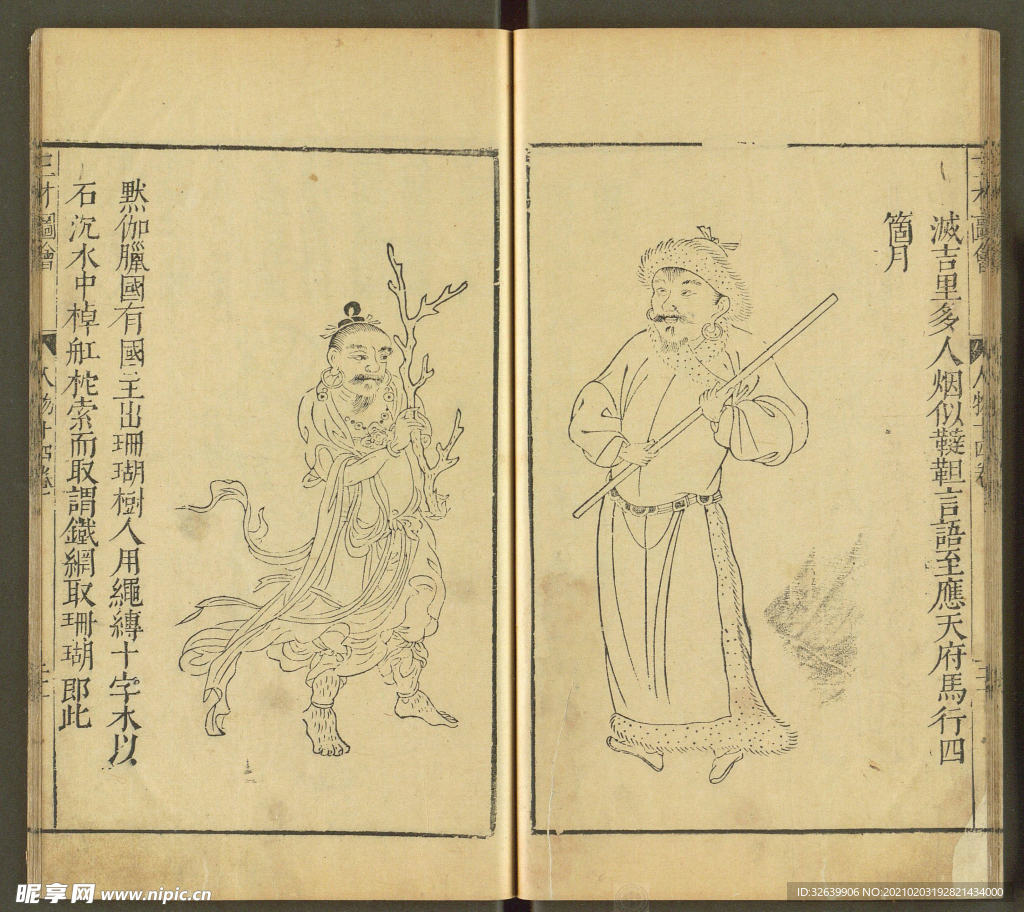 滅吉里多人烟似韃靼言語至應天府馬行四
箇月
三才圖會
人物十四卷
默伽臘國有國王出珊瑚樹人用繩縛十字木以
石沉水中棹舡桅索而取謂鐵網取珊瑚即此
三才圖會
人物十四卷
昵享网 www.nipic.cn
ID:32639906 NO:20210203192821434000